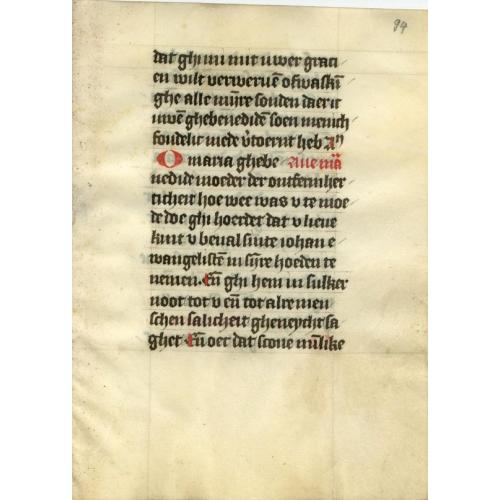 94
dat ghi mi mit uwer graci
en wilt verwervē ofwaskī
ghe alle mijre sonden daer ic
uwē ghebenediden soen menich
foudelic mede v̄toernt heb Aⁿ
O maria ghebe Aue mā
nedide moeder der ontfermher
ticheit hoe wee was v te moe
de doe ghi hoerdet dat v lieue
kint v beual sinte iohan e
wangelistē in sijre hoeden te
nemen. Eñ ghi hem in sulker
noot tot v eñ tot alre men
schen salicheit gheneycht sa
ghet Eñ oec dat scone mīlike